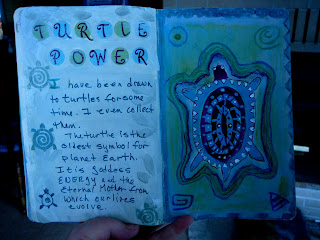 TURTLE
POWER
I have been drawn
to turtles for some
time. I even collect
them.
The turtle is the
oldest symbol for
planet Earth.
It is Goddess
ENERGY and the
Eternal Mother from
which our lives
evolve.